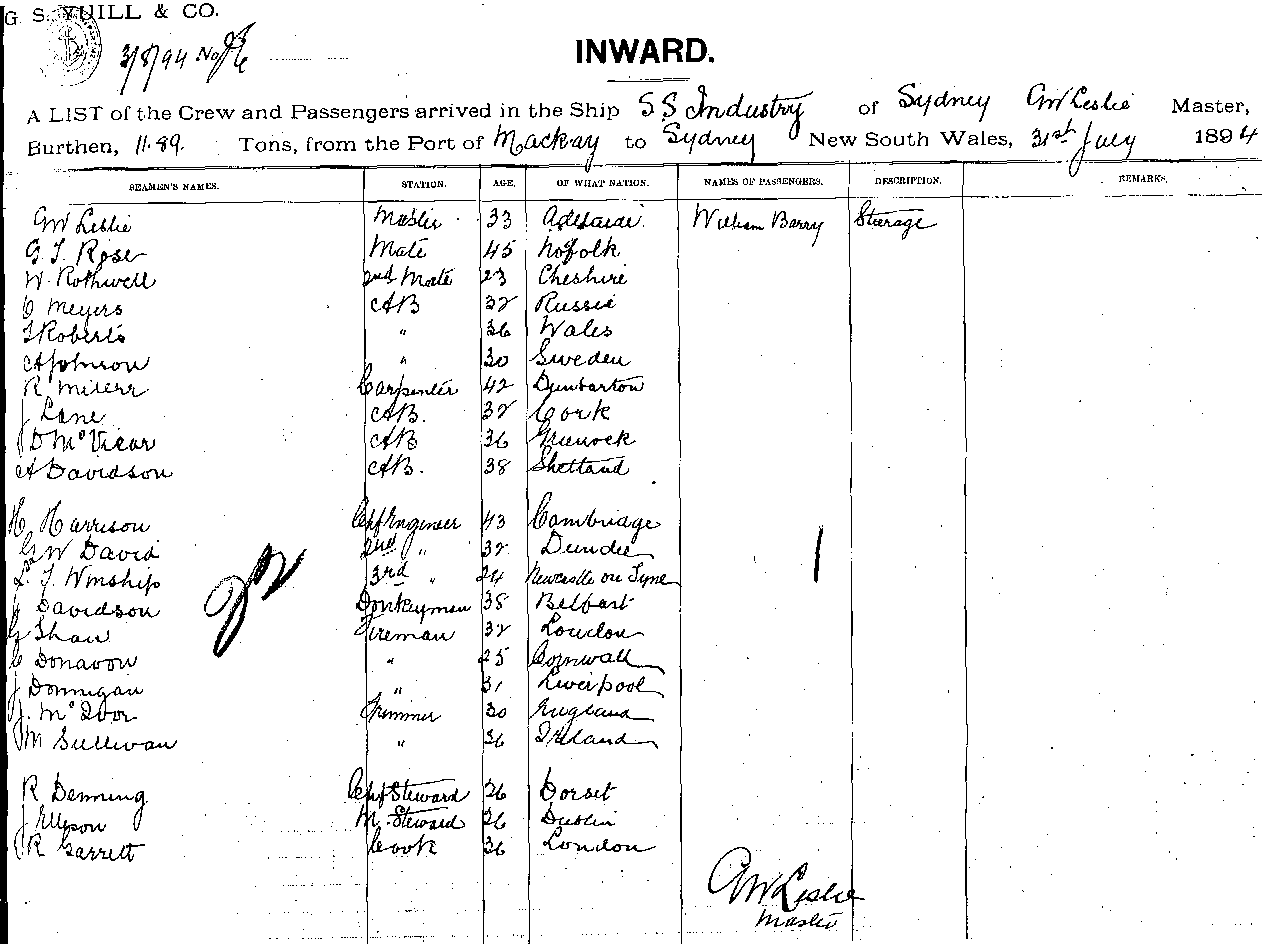 G. S. YUILL & CO.
3/8/94 No
INWARD.
A LIST of the Crew and Passengers arrived in the Ship S.S Industry of Sydney GW Leslie Master,
Burthen, 11.89. Tons, from the Port of Mackay to Sydney New South Wales, 31st July 1894
SEAMEN'S NAMES. STATION. AGE. OF WHAT NATION. NAMES OF PASSENGERS. DESCRIPTION. REMARKS.
GW Leslie Master 33 Adelaide William Barry Steerage
G. T. Rose Mate 45 Norfolk
W. Rothwell 2nd Mate 23 Cheshire
C Meyers AB 32 Russia
T Roberts " 36 Wales
A Johnson " 30 Sweden
R Millerr Carpenter 42 Dunbarton
J Lane AB. 32 Cork
D McVicar AB 36 Greenock
A Davidson AB. 38 Shetland
H Harrison Chf Engineer 43 Cambridge
G W David 2nd " 32 Dundee
T. Winship 3rd " 24 Newcastle on Tyne
J Davidson Donkeyman 38 Belfast
G Shaw Fireman 32 London
C Donavon " 25 Cornwall
J Donnigan " 31 Liverpool
J. McIvor Trimmer 30 England
M Sullivan " 36 Ireland
22 1
R Denning Chf Steward 26 Dorset
J Ellison M. Steward 26 Dublin
R Garrett Cook 36 London
GW Leslie
Master